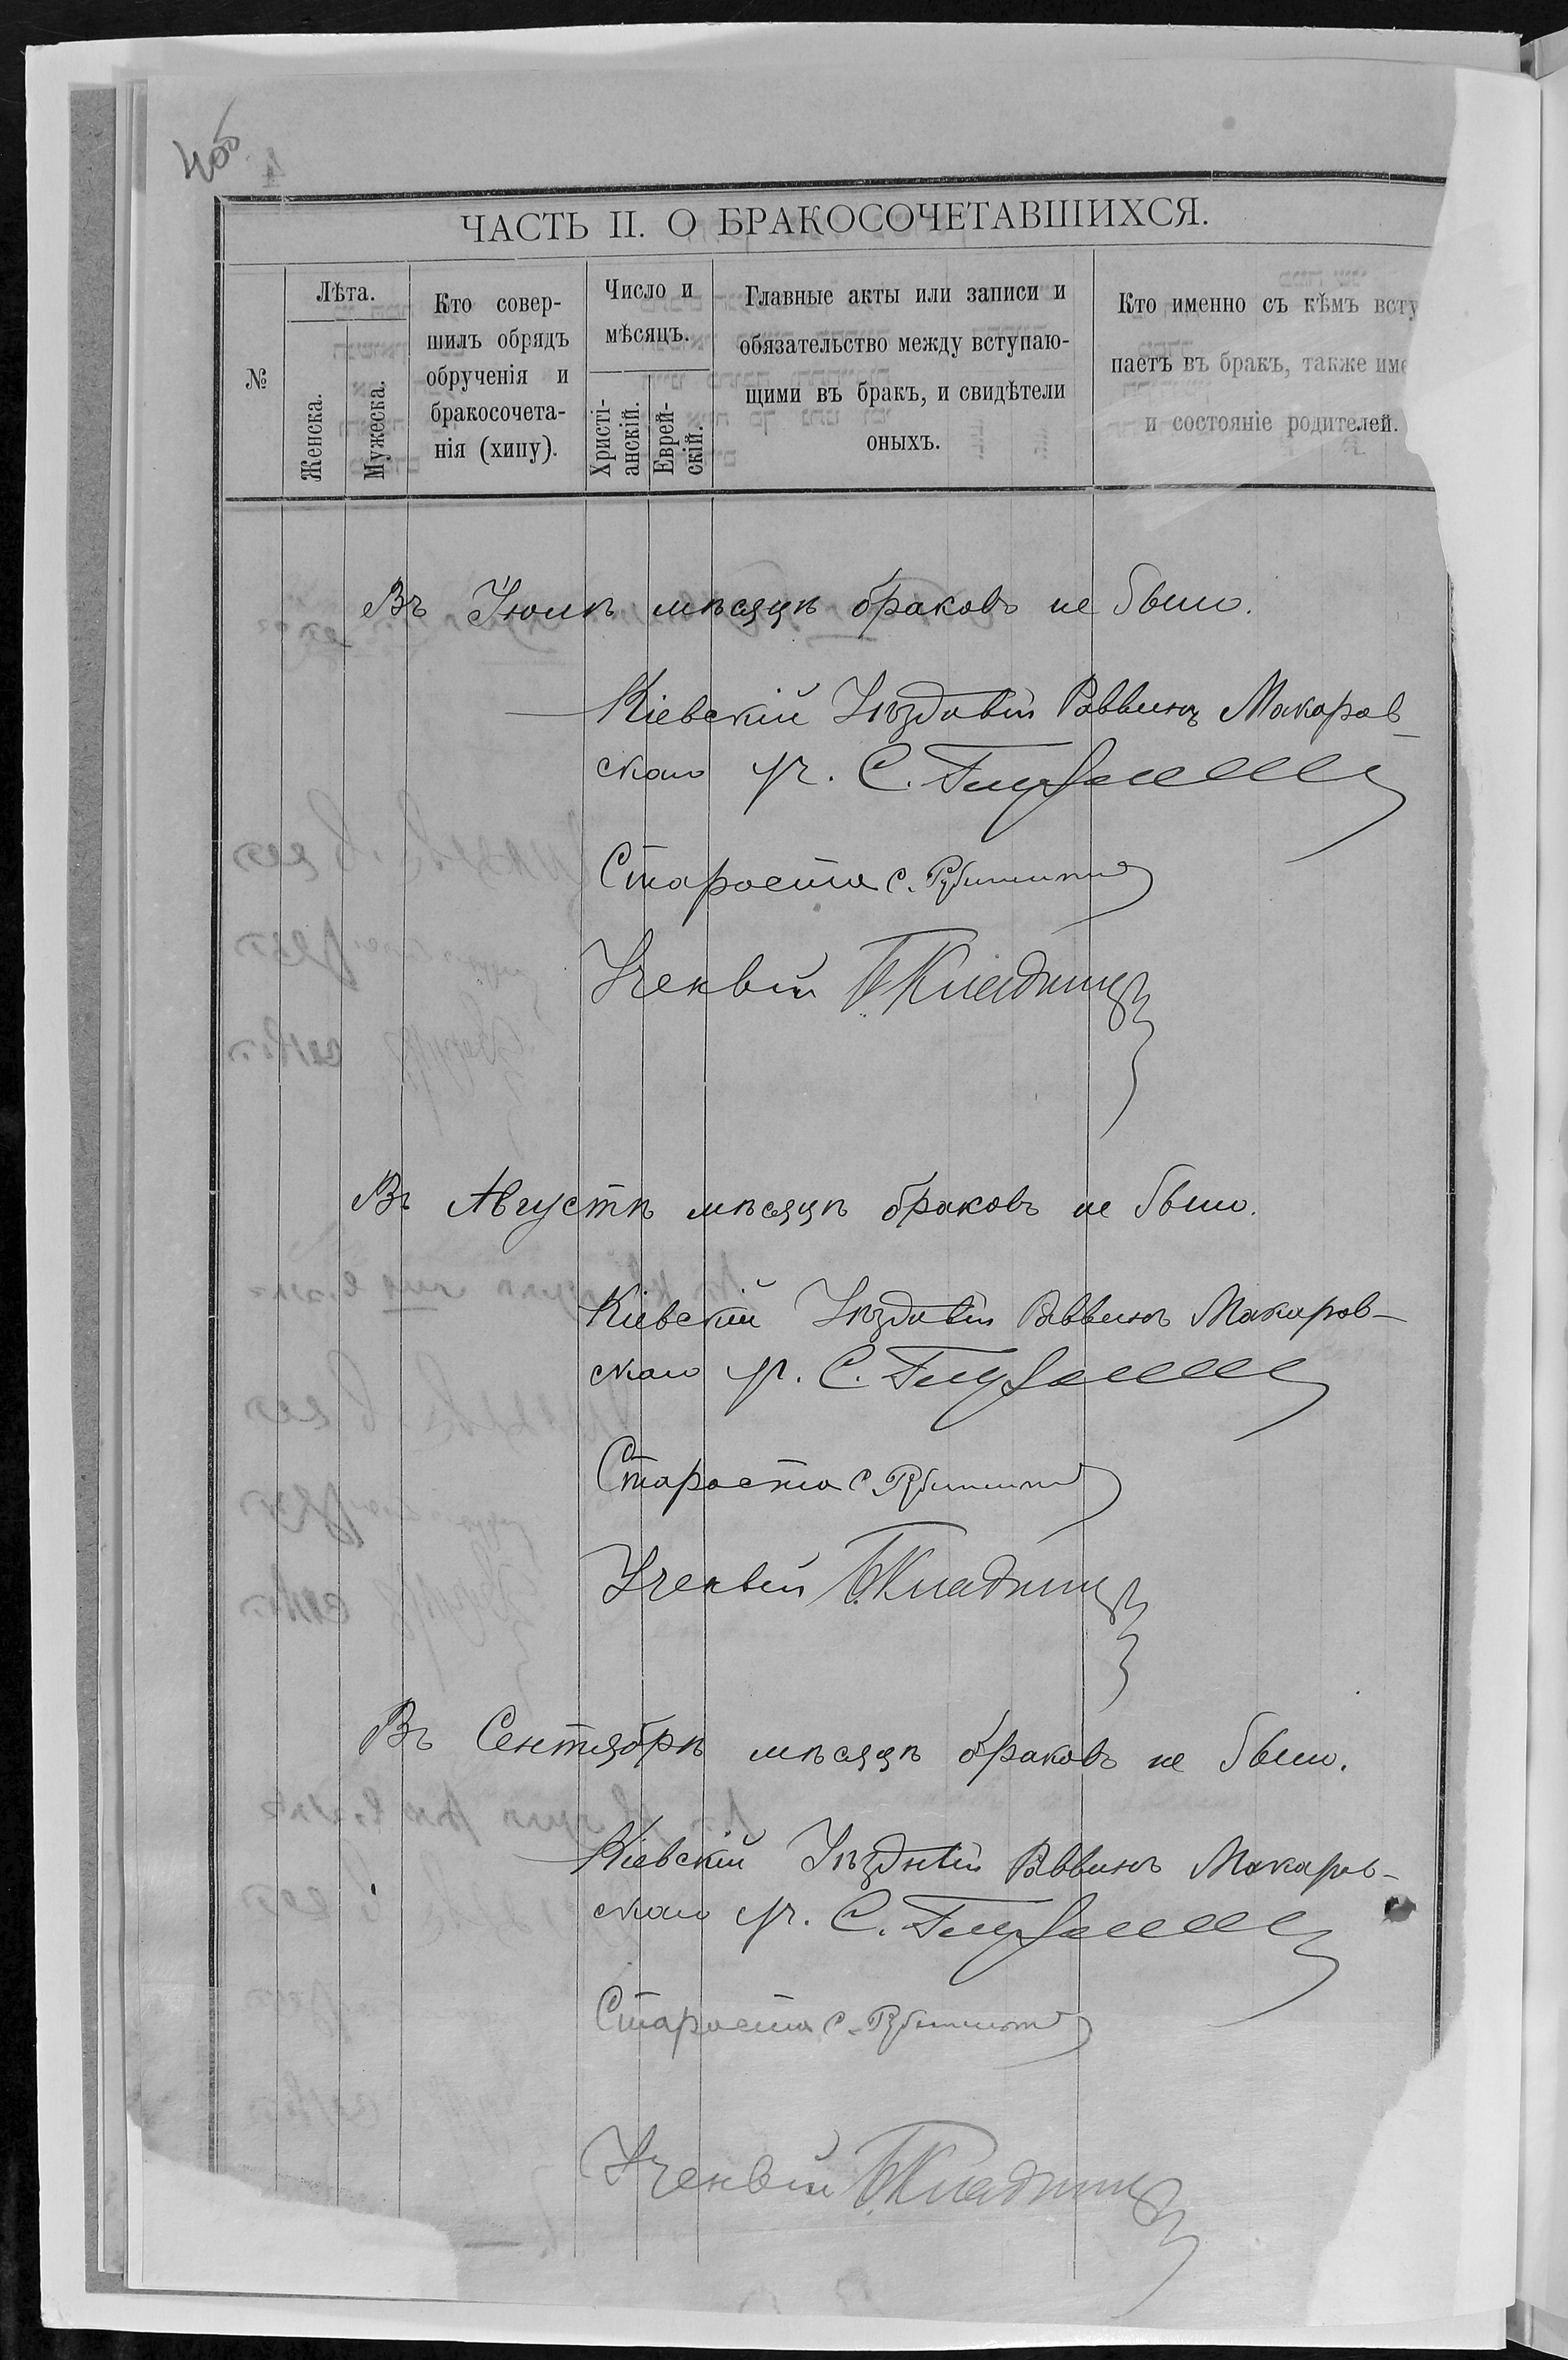 4об
ЧАСТЬ II. О БРАКОСОЧЕТАВШИХСЯ.
№
Лѣта.
Женска.
Мужеска.
Кто совер-
шилъ обрядъ
обрученія и
бракосочета-
нія (хипу).
Число и
мѣсяцъ.
Христі-
анскій.
Еврей-
скій.
Главные акты или записи и
обязательство между вступаю-
щими въ бракъ, и свидѣтели
оныхъ.
Кто именно съ кѣмъ всту
паетъ въ бракъ, также име
и состояніе родителей.
Въ Іюлѣ мѣсяцѣ браковъ не было.
Кіевскій Уѣздный Раввинъ Макаров-
скаго уч. С.
Староста С.
Ученый
Въ Августѣ мѣсяцѣ браковъ не было.
Кіевскій Уѣздный Раввинъ Макаров-
скаго уч. С.
Староста С.
Ученый
Въ Сентябрѣ мѣсяцѣ браковъ не было.
Кіевскій Уѣздный Раввинъ Макаров-
скаго уч. С.
Староста С.
Ученый